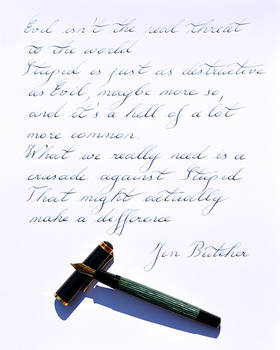 Evil isn't the real threat
to the world
Stupid is just as destructive
as Evil, maybe more so,
and it's a hell of a lot
more common
What we really need is a
crusade against Stupid
That might actually
make a difference
Jim Butcher